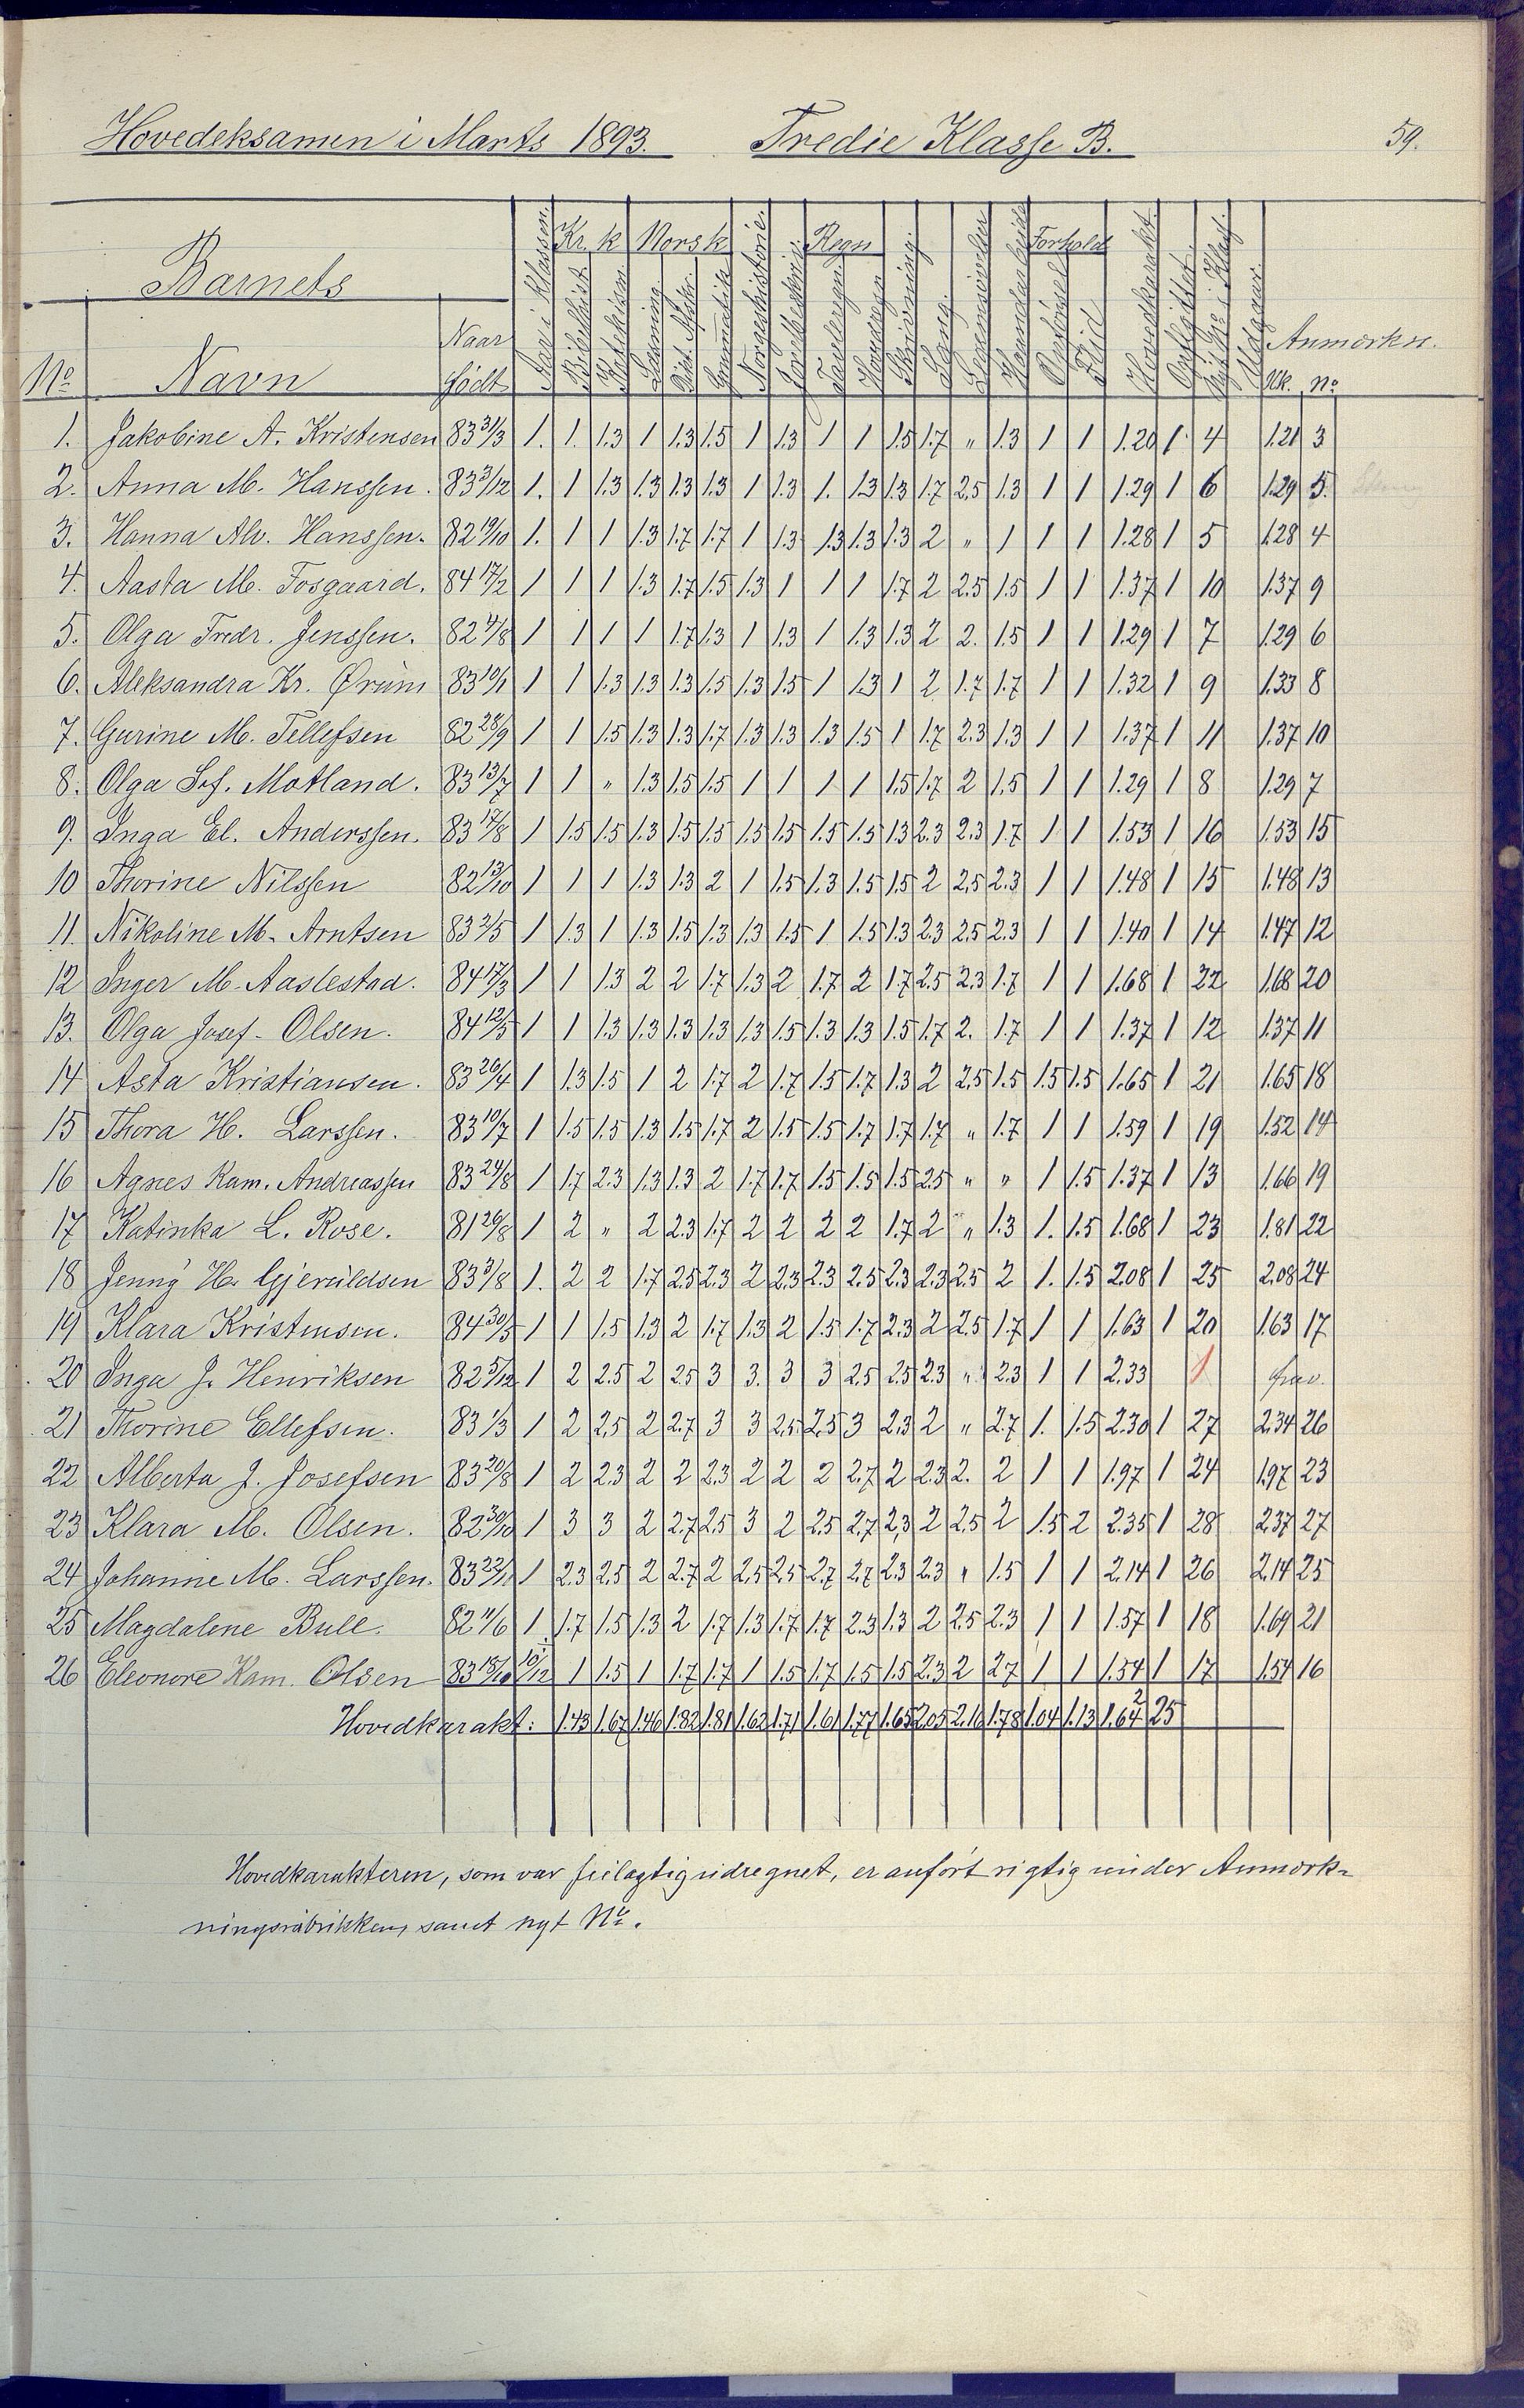 Hovedeksamen i Marts 1893. Tredie Klasse B. 59.
Barnets
Kr. k Norsk Regn Forhold
Aar i Klassen. Bibelhist. Katekism Læsning Dikt. Afskr. Grammatik Norgeshistorie. Tavleregn Hovedregn Skrivning Sang. Legemsøvelser Haandarbeide Opførsel Flid Hovedkarakt. Opflyttet
Naar
Anmorkn.
No Navn født Hk. No
1. Jakobine A. Kristensen 83 31/3 1. 1. 1.3 1 1.3 1.5 1 1.3 1 1 1.5 1.7 „ 1.3 1 1 1.20 1. 4 1.21 3
2. Anna M. Hanssen. 83 3/12 1. 1 1.3 1.3 1.3 1.3 1 1.3 1. 1.3 1.3 1.7 2.5 1.3 1 1 1.29 1 6 1.29 5.
3. Hanna Alv. Hanssen. 82 19/10 1. 1 1 1.3 1.7 1.7 1 1.3 1.3 1.3 1.3 2 „ 1 1 1 1.28 1 5 1.28 4
4. Aasta M. Fosgaard. 84 17/2 1 1 1 1.3 1.7 1.5 1.3 1 1 1 1.7 2 2.5 1.5 1 1 1.37 1 10 1.37 9
5. Olga Fredr. Jenssen. 82 4/8 1 1 1 1 1.7 1.3 1 1.3 1 1.3 1.3 2 2. 1.5 1 1 1.29 1 7 1.29 6
6. Aleksandra Kr. Ørum 83 19/1 1 1 1.3 1.3 1.3 1.5 1.3 1.5 1 1.3 1 2 1.7 1.7 1 1 1.32 1 9 1.33 8
7. Gurine M. Tellefsen 82 28/9 1 1 1.5 1.3 1.3 1.7 1.3 1.3 1.3 1.5 1 1.7 2.3 1.3 1 1 1.37 1 11 1.37 10
8. Olga Sof. Motland. 83 13/7 1 1 „ 1.3 1.5 1.5 1 1 1 1 1.5 1.7 2 1.5 1 1 1.29 1 8 1.29 7
9. Inga El. Anderssen. 83 17/8 1 1.5 1.5 1.3 1.5 1.5 1.5 1.5 1.5 1.5 1.3 2.3 2.3 1.7 1 1 1.53 1 16 1.53 15
10 Thorine Nilssen 82 13/10 1 1 1 1.3 1.3 2 1 1.5 1.3 1.5 1.5 2 2.5 2.3 1 1 1.48 1 15 1.48 13
11. Nikoline M. Arntsen 83 2/5 1 1.3 1 1.3 1.5 1.3 1.3 1.5 1 1.5 1.3 2.3 2.5 2.3 1 1 1.40 1 14 1.47 12
12 Inger M. Aaslestad. 84 17/3 1 1 1.3 2 2 1.7 1.3 2 1.7 2 1.7 2.5 2.3 1.7 1 1 1.68 1 22 1.68 20
13. Olga Josef. Olsen. 84 12/5 1 1 1.3 1.3 1.3 1.3 1.3 1.5 1.3 1.3 1.5 1.7 2. 1.7 1 1 1.37 1 12 1.37 11
14 Asta Kristiansen. 83 26/4 1 1.3 1.5 1 2 1.7 2 1.7 1.5 1.7 1.3 2 2.5 1.5 1.5 1.5 1.65 1 21 1.65 18
15 Thora H. Larssen. 83 10/7 1 1.5 1.5 1.3 1.5 1.7 2 1.5 1.5 1.7 1.7 1.7 „ 1.7 1 1 1.59 1 19 1.52 14
16 Agnes Kam. Andreassen 83 24/8 1 1.7 2.3 1.3 1.3 2 1.7 1.7 1.5 1.5 1.5 2.5 „ „ 1 1.5 1.37 1 13 1.66 19
17 Katinka L. Rose. 81 26/8 1 2 „ 2 2.3 1.7 2 2 2 2 1.7 2 „ 1.3 1. 1.5 1.68 1 23 1.81 22
18 Jenny H. Gjeruldsen 83 3/8 1. 2 2 1.7 2.5 2.3 2 2.3 2.3 2.5 2.3 2.3 2.5 2 1. 1.5 2.08 1 25 2.08 24
19 Klara Kristensen. 84 30/5 1 1 1.5 1.3 2 1.7 1.3 2 1.5 1.7 2.3 2 2.5 1.7 1 1 1.63 1 20 1.63 17
20 Inga J. Henriksen 82 5/12 1 2 2.5 2 2.5 3 3. 3 3 2.5 2.5 2.3 „ 2.3 1 1 2.33 1
21 Thorine Ellefsen. 83 1/3 1 2 2.5 2 2.7 3 3 2.5 2.5 3 2.3 2 „ 2.7 1. 1.5 2.30 1 27 2.34 26
22 Alberta J. Josefsen 83 20/8 1 2 2.3 2 2 2.3 2 2 2 2.7 2 2.3 2. 2 1 1 1.97 1 24 1.97 23
23 Klara M. Olsen. 82 30/10 1 3 3 2 2.7 2.5 3 2 2.5 2.7 2.3 2 2.5 2 1.5 2 2.35 1 28 2.37 27
24 Johanne M. Larssen. 83 22/11 1 2.3 2.5 2 2.7 2 2.5 2.5 2.7 2.7 2.3 2.3 „ 1.5 1 1 2.14 1 26 2.14 25
25 Magdalene Bull. 82 11/6 1 1.7 1.5 1.3 2 1.7 1.3 1.7 1.7 2.3 1.3 2 2.5 2.3 1 1 1.57 1 18 1.69 21
26 Eleonore Kam. Olsen 83 18/10 10/12 1 1.5 1 1.7 1.7 1 1.5 1.7 1.5 1.5 2.3 2 2.7 1 1 1.54 1 17 1.54 16
Hovedkarakt: 1.43 1.67 1.46 1.82 1.81 1.62 1.71 1.61 1.77 1.65 2.05 2.16 1.78 1.04 1.13 1.64 25
Hovedkarakteren, som var feilagtig udregnet, er anført rigtig under Anmerk-
ningsrubrikken, samt nyt No.